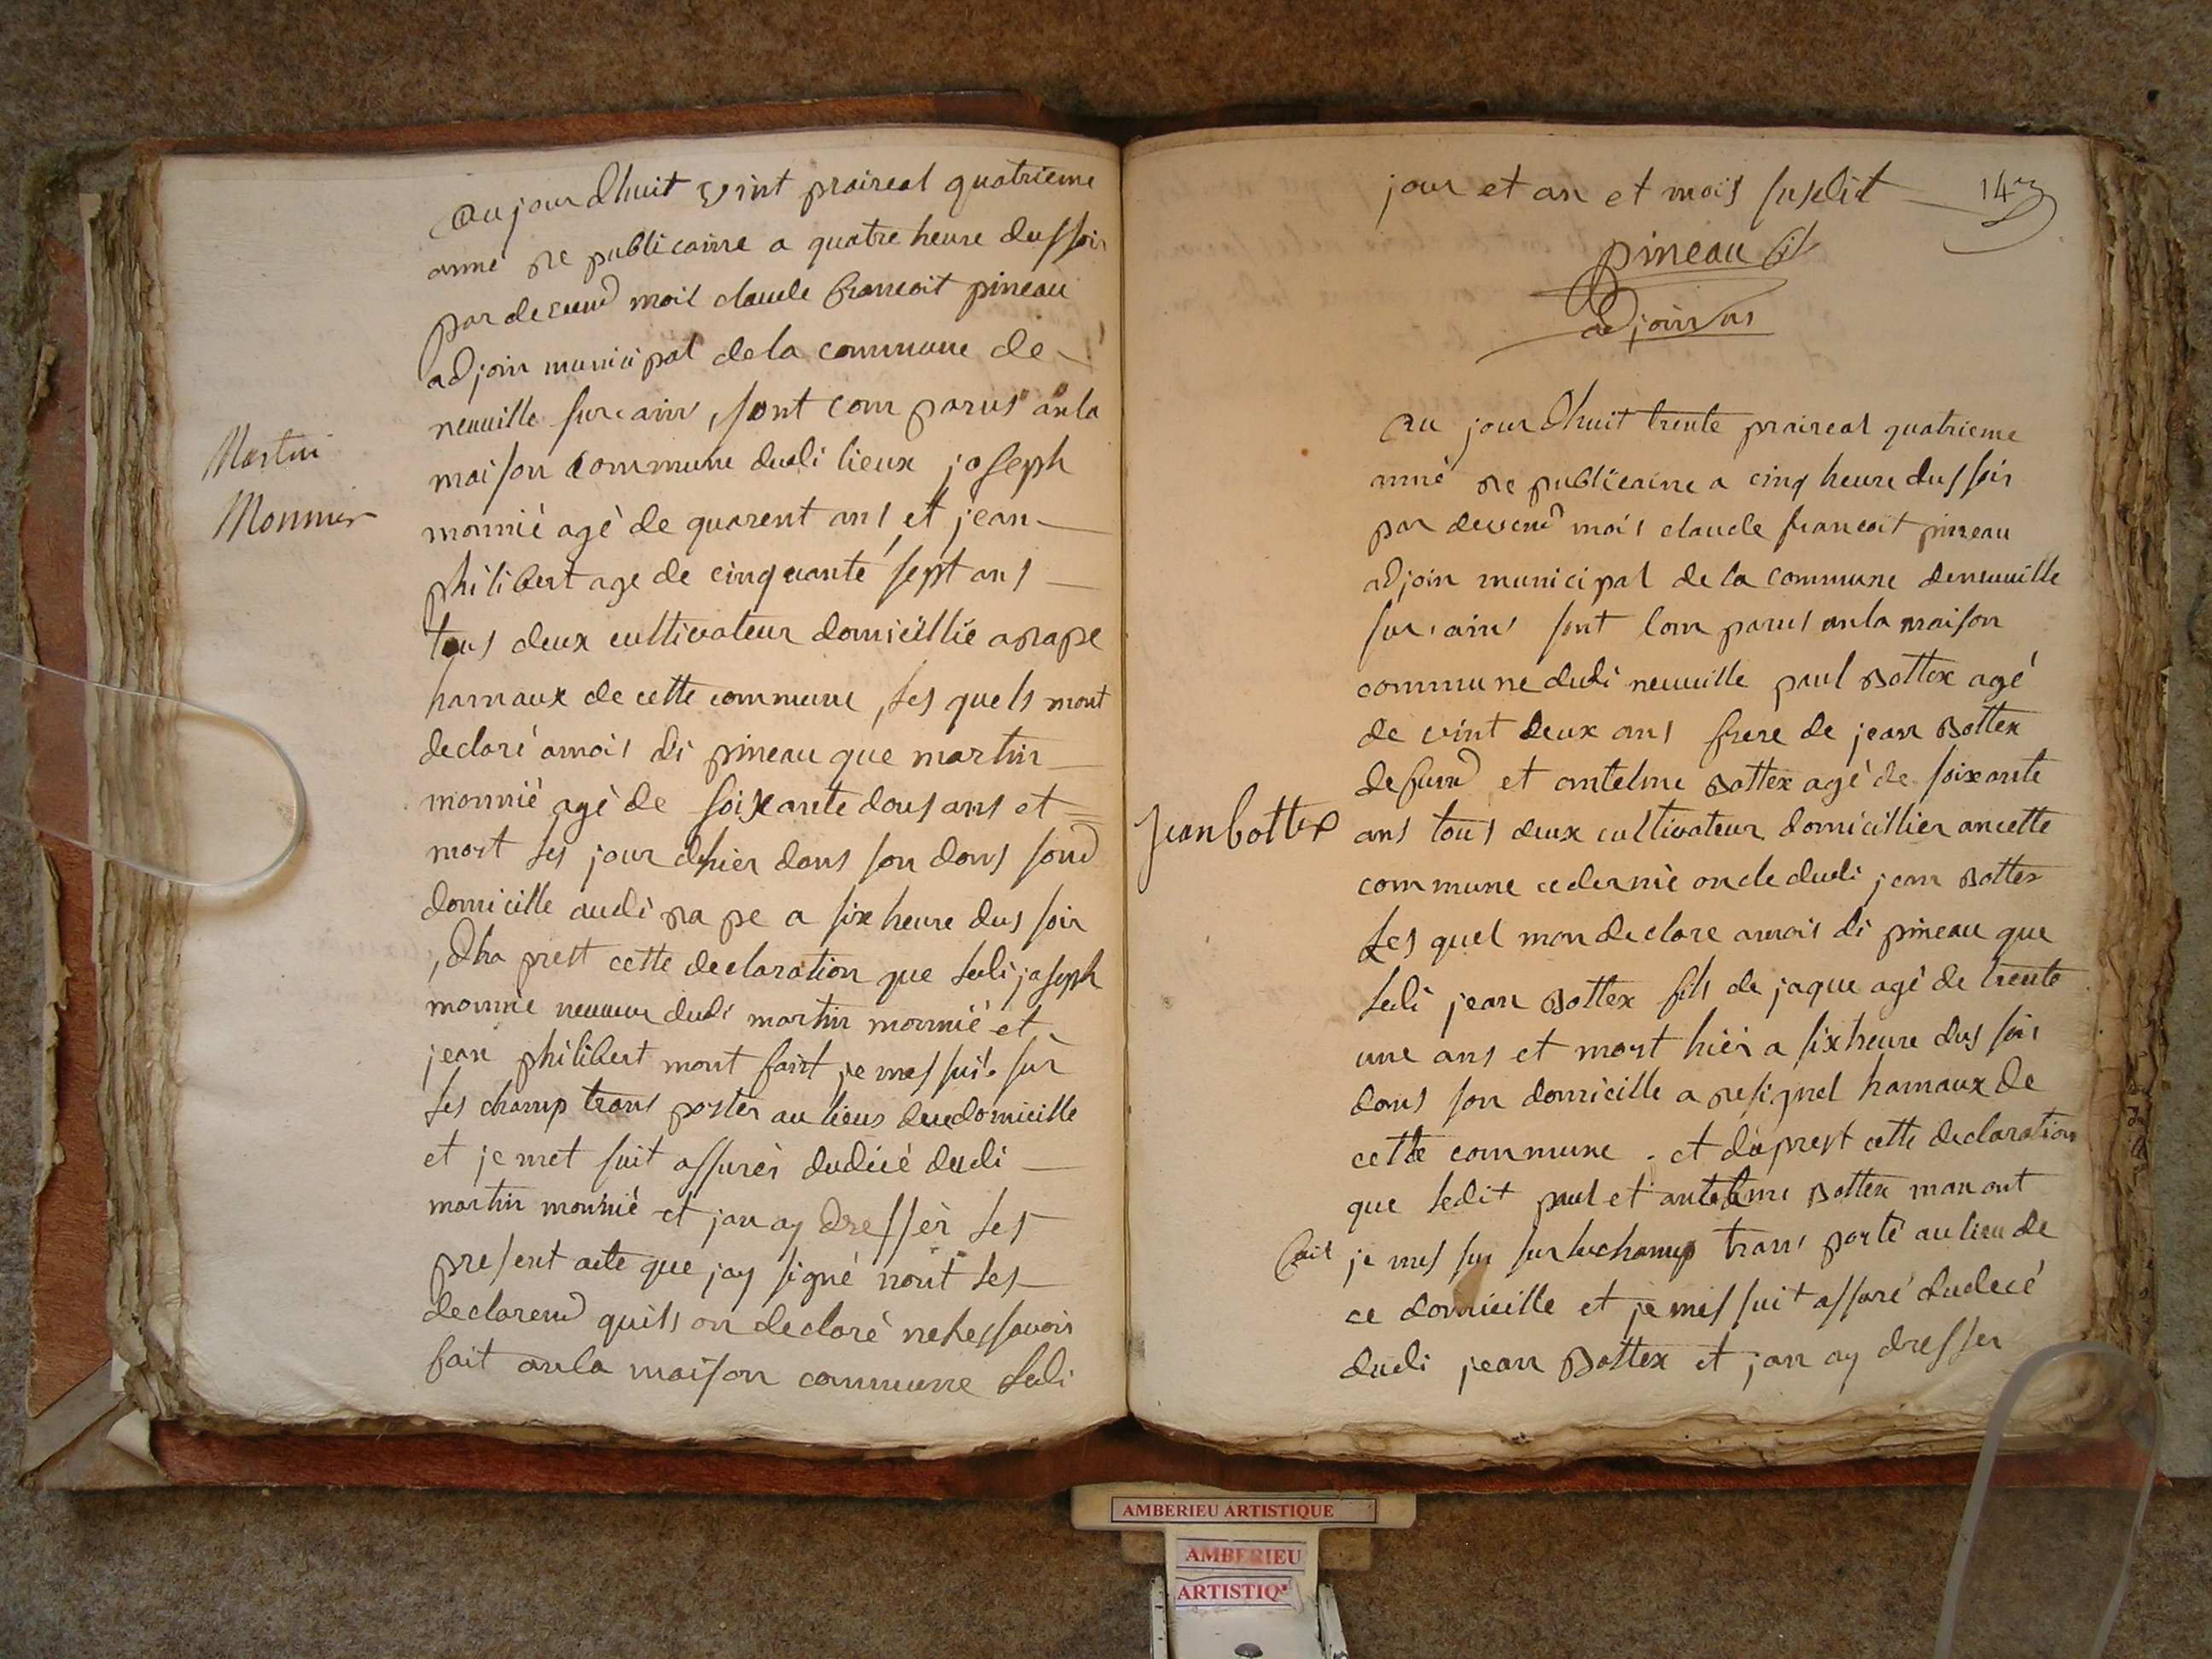 aujourdhuit vint praireal quatrieme
anné republicaine a quatre heure dus soir
par devend mois claude francoit pineau
adjoin municipal de la commune de
neuville sur ain, sont comparus anla
maison commune dudi lieux joseph
Martin
monnié agé de quarent ans et jean
Monnier
philibert age de cinquante sept ans
tous deux cultivateur domicillie a rape
hamaux de cette commune, les quels mont
declaré amois di pineau que martin
monnié agé de soixante dous ans et
mort les jour dhier dans son dons sond
domicille audi rape a six heure dus soir
, dha prest cette declaration que ledi joseph
monnie neuveu dudi martin monnié et
jean philibert mont fait je mes suit sur
les champ trans porter au lieus dudomicille
et je met suit assurér dudécé dudi
martin monnié et jan ay dressér les
present acte que jay signé nont les
declarend quils on declaré nelessavoir
fait anla maison commune ledi
jour et an et mois susdit
14
pineau
adjoin
au jourdhuit trente praireal quatrieme
anné republicaine a cinq heure dus soir
par devend mois claude francoit pineau
adjoin municipal de la commune deneuville
sur ain sont comparus anla maison
commune dudi neuville paul Bottex agé
de vint deux ans frere de jean Bottex
defund et antelme Bottex agé de soixante
Jean bottex
ans tous deux cultivateur domicillier ancette
commune cedernié oncle dudi jean Bottex
Les quel mon declare amois di pineau que
ledi jean Bottex fils de jaque agé de trente
une ans et mort hier a six heure dus soir
dans son domicille a resignel hamaux de
cette commune. et daprest cette declaration
que ledit paul et antelme Bottex man ont
fait je mes sui surlechamp trans porté au lieu de
ce domicille et je mes suit assuré dudecé
dudi jean Bottex et jan ay dresser
AMBERIEU ARTISTIQUE
AMBERIEU
ARTISTIQ